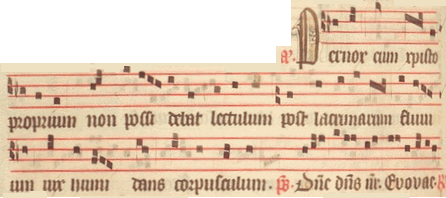 a'. Pernox cum xpisto
proprium non posti debat lectulum post lacrimarum flum
um uix humi dans corpusculum. ps. Dñe dñs nr. Evovae.